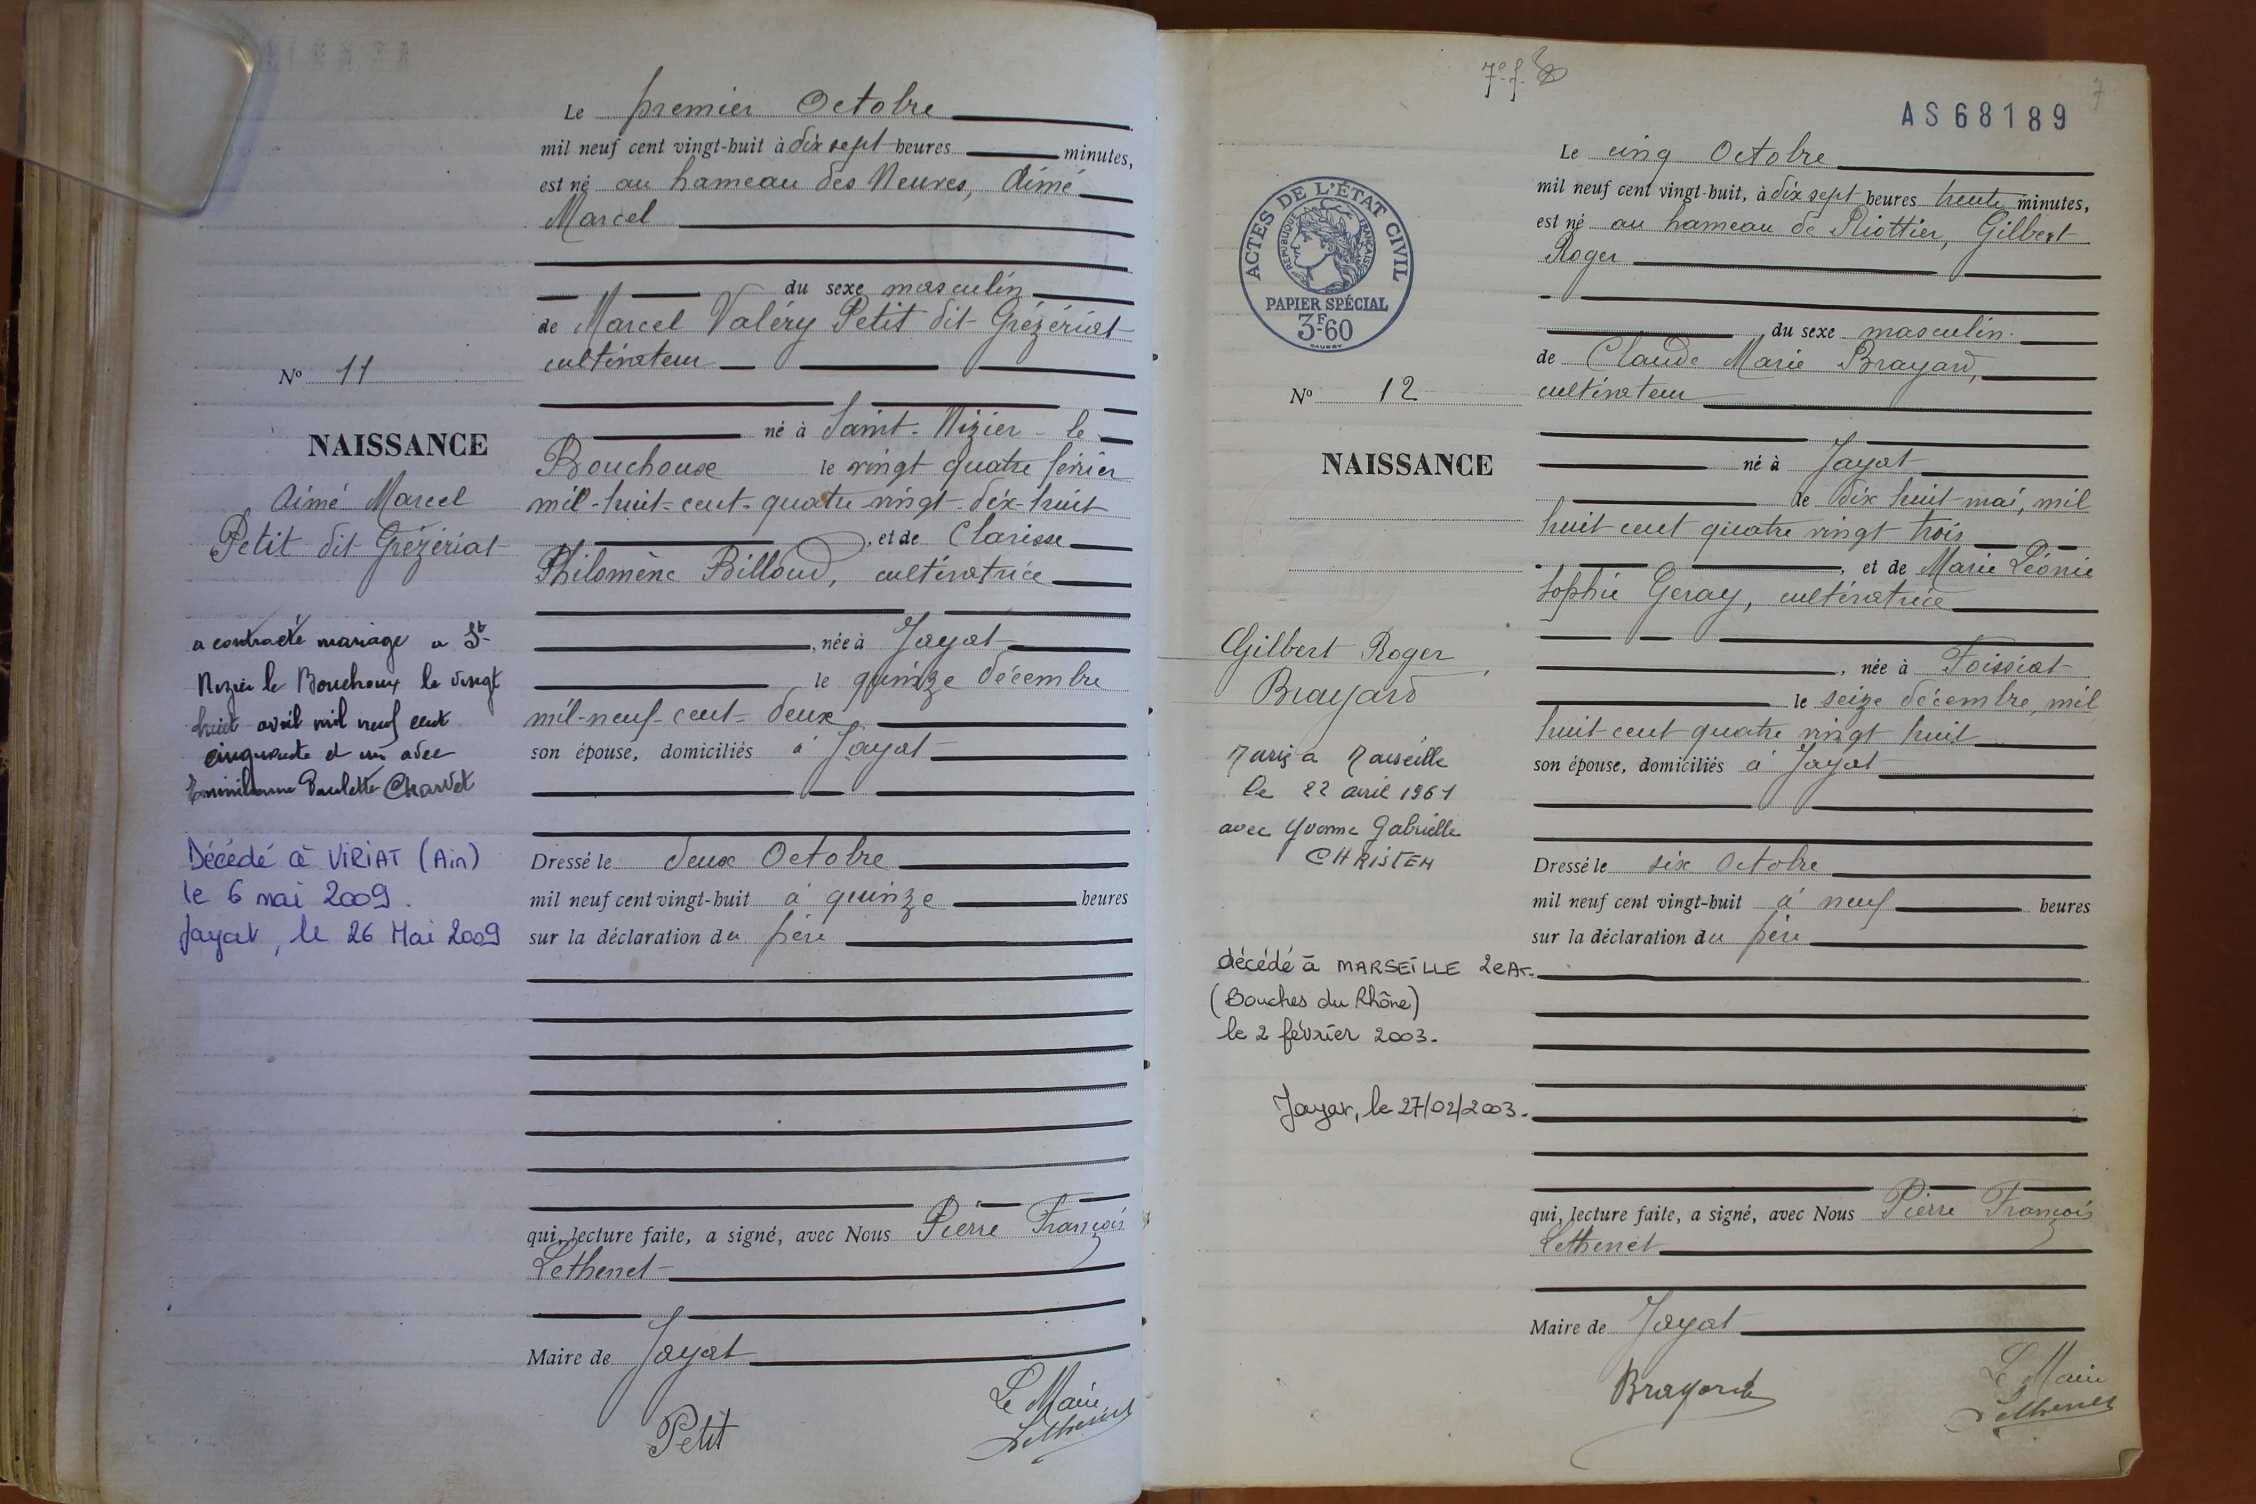 Le premier Octobre
mil neuf cent vingt-huit à dix sept heures minutes,
est né au hameau des Neuves, Aimé
Marcel
du sexe masculin
de Marcel Valéry Petit dit Grézériat
cultivateur
né à Saint-Nizier-le
Bouchoux le vingt quatre février
mil-huit-cent-quatre-vingt-dix-huit
, et de Clarisse
Philomène Billoud, cultivatrice
, née à Jayat
le quinze décembre
mil-neuf-cent-deux
son épouse, domiciliés à Jayat
Dressé le deux Octobre
mil neuf cent vingt-huit à quinze heures
sur la déclaration du père
qui, lecture faite, a signé, avec Nous Pierre François
Lethenet
Maire de Jayat
Petit
Le Maire
Lethenet
Nº 11
NAISSANCE
Aimé Marcel
Petit dit Grézériat
a contracté mariage a St
Nizier le Bouchoux le vingt
huit avril mil neuf cent
cinquante et un avec
Paulette Charvet
Décédé à VIRIAT (Ain)
le 6 mai 2009.
Jayat, le 26 Mai 2009
7e f.
7
AS68189
ACTES DE L'ÉTAT CIVIL
RÉPUBLIQUE FRANÇAISE
PAPIER SPÉCIAL
3F60
Le cinq Octobre
mil neuf cent vingt-huit, à dix sept heures trente minutes,
est né au hameau de Riottier, Gilbert
Roger
du sexe masculin.
de Claude Marie Brayard,
cultivateur
né à Jayat
de dix huit mai, mil
huit cent quatre vingt trois
, et de Marie Léonie
Sophie Geray, cultivatrice
, née à Foissiat
le seize décembre, mil
huit cent quatre vingt huit
son épouse, domiciliés à Jayat
Dressé le six Octobre
mil neuf cent vingt-huit à neuf heures
sur la déclaration du père
qui, lecture faite, a signé, avec Nous Pierre François
Lethenet
Maire de Jayat
Brayard
Le Maire
Lethenet
Nº 12
NAISSANCE
Gilbert Roger
Brayard
Marié a Marseille
le 22 avril 1961
avec Yvonne Gabrielle
CHRISTEN
décédé à MARSEILLE 2eAr.
(Bouches du Rhône)
le 2 février 2003.
Jayat, le 27/02/2003.